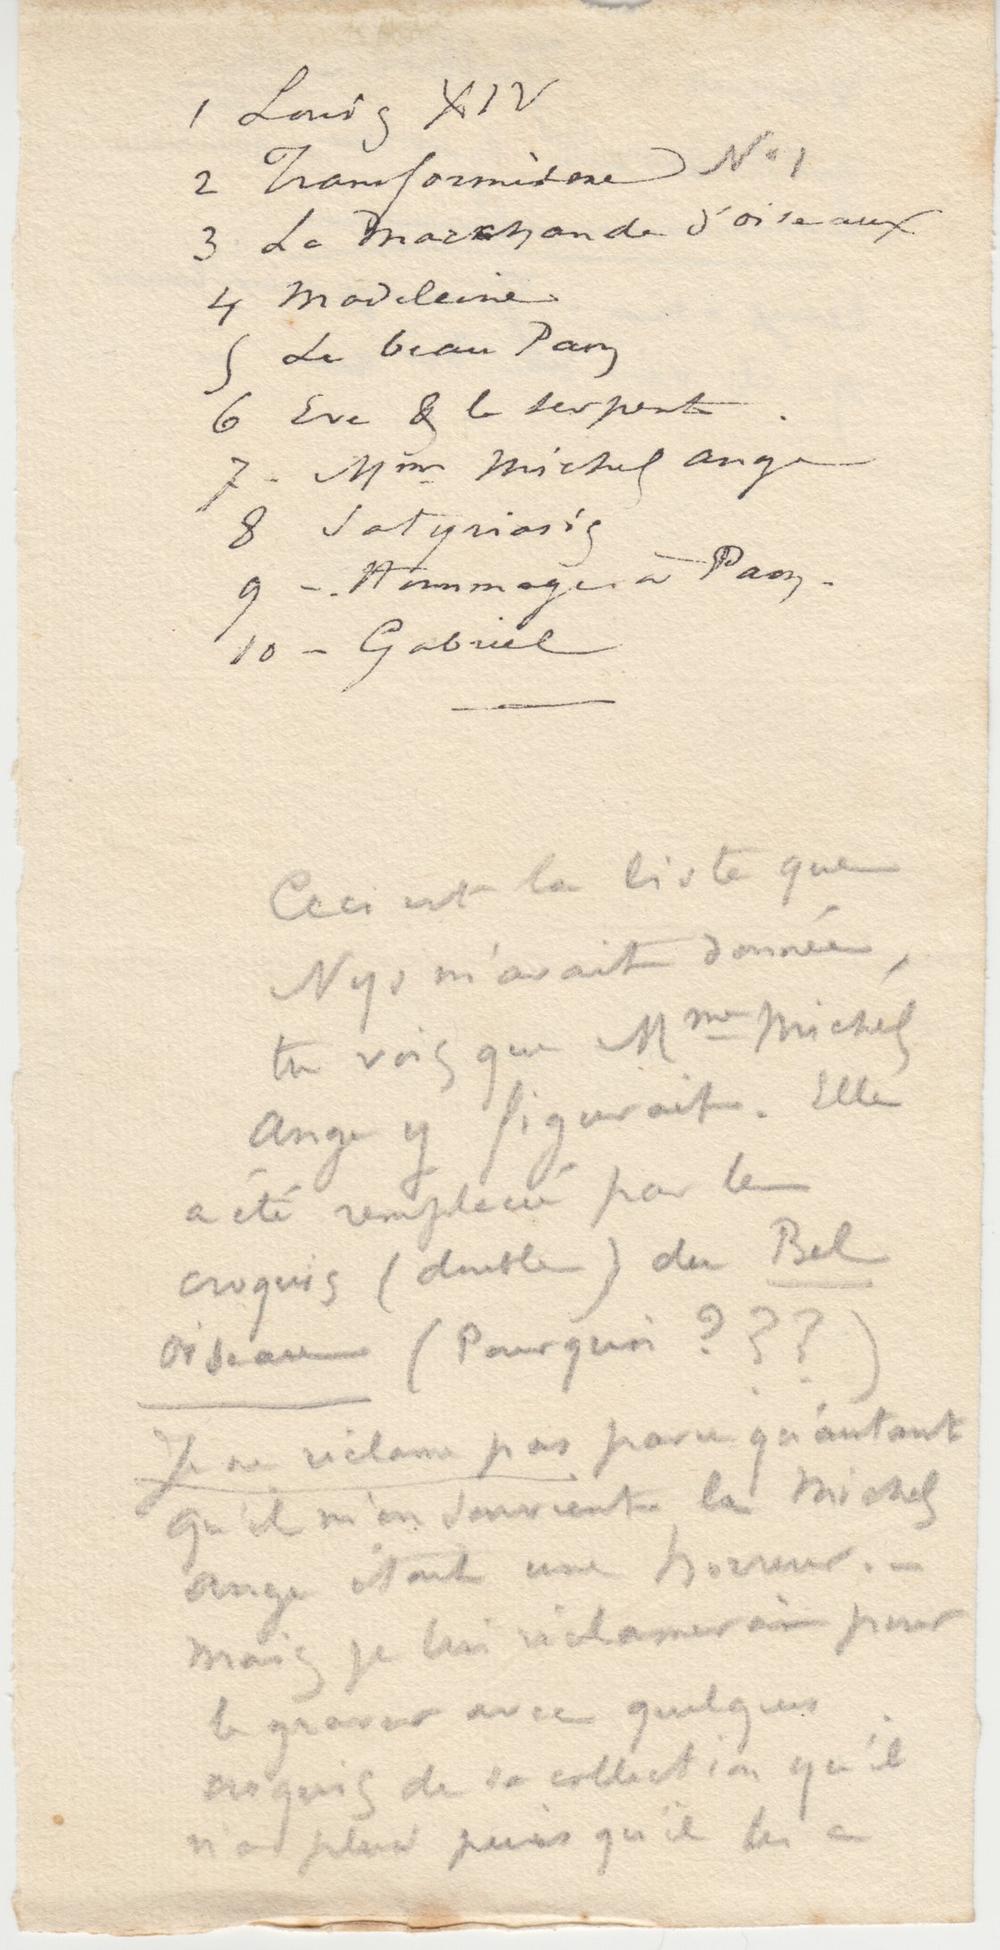 1 Louis XIV
2 Transformisme N° 1
3 La Marchande d'oiseaux
4 Madeleine
5 Le beau Paon
6 Eve & le serpent.
7 - Mme Michel ange
8 Satyriasis
9 - Hommage à Paon.
10 - Gabriel
Ceci est la liste que
Nys m'avait donnée,
tu vois que Mme Michel
Ange y figurait. Elle
a été remplacé par le
croquis (double) du Bel
oiseau (Pourquoi ???)
Je ne réclame pas parce qu'autant
qu'il m'en souvient la Michel
ange était une horreur. -
Mais je lui réclamerai pour
le graver avec quelques
croquis de sa collection qu'il
n'a plus puisqu'il les a